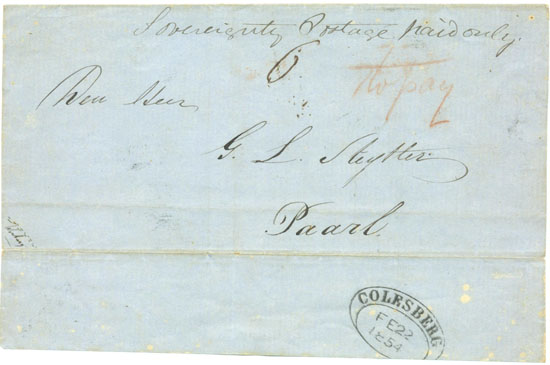 Sovereignty Postage paid only.
6
to pay
Den Heer
G. L. Steytler
Paarl.
COLESBERG
FE 22
1854